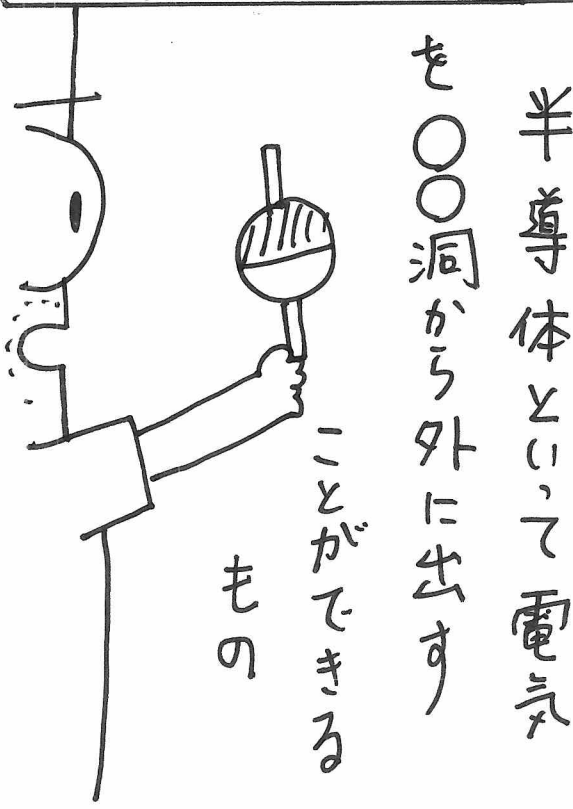 半導体といって電気
を〇〇洞から外に出す
ことができる
もの